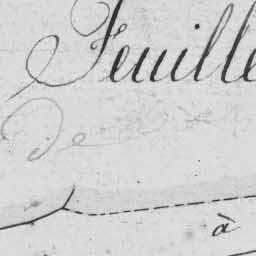 Feuille
De
à